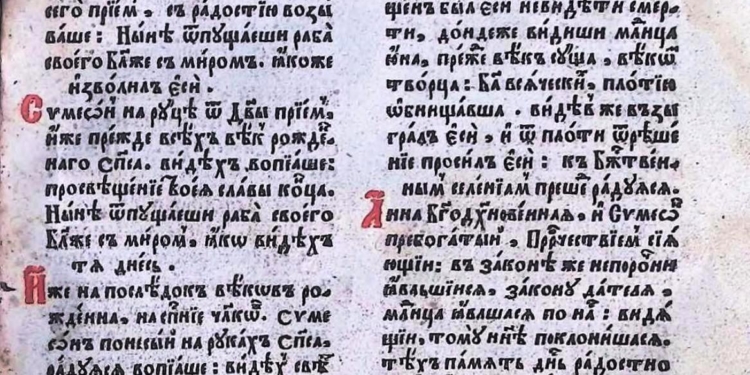 сего́ прїе́м, съ ра́достїю возꙋ
ва́ше: Ны́нѣ ѿпꙋща́еши раба̀
своего̀ Бл҃же съ ми́ромъ. ꙗ҆́коже
и҆зво́лилъ є҆сѝ.
Сѷмео́н на рꙋ́цѣ ѿ Дв҃ы прїе́м,
и҆́же пре́жде всѣ́хъ вѣ́къ рожде́н
наго Сп҃са. ви́дѣхъ, вопїа́ше:
просвѣще́нїе твоея̀ сла́вы конца̀.
Ны́нѣ ѿпꙋща́еши раба̀ своего̀
Бл҃же съ ми́ром, ꙗ҆́кѡ ви́дѣхъ
тѧ̀ дне́сь.
И҆́же на послѣ́докъ вѣкѡ́въ ро
жде́нна, на сп҃се́нїе чл҃кѡ́в. Сѷме
ѡ́нъ поне́сый на рꙋка́хъ Сп҃са,
ра́дꙋѧсѧ вопїа́ше: ви́дѣхъ свѣ́
ще́нъ бы́лъ є҆сѝ не ви́дѣти сме́р
ти, до́ндеже ви́диши мл҃нца
ю҆́на, пре́же вѣ́къ сꙋ́ща, вѣкѡ́въ
творца̀: Бг҃а всѧ́ческих, пло́тїю
ѡ҆бнища́вша. ви́дѣв же възы
гра́лъ є҆сѝ, и҆ ѿ пло́ти ѿрѣше́
нїе проси́лъ є҆сѝ: къ Бж҃твен
ным селе́нїам преше́л ра́дꙋѧсѧ.
А҆́нна Бг҃одх҃нове́нная, и҆ Сѷмеѡ́н
пребога́тый, Прⷪ҇ро́чествїем сїѧ́
ющїи: въ зако́нѣ же непоро́чни
ꙗ҆́вльшїисѧ, зако́нꙋ да́телѧ,
мл҃нца ꙗ҆́вльшасѧ по на́с: ви́дѧ
щїи, томꙋ̀ нн҃ѣ поклони́шасѧ.
тѣ́хъ па́мѧть дн҃ь ра́достно